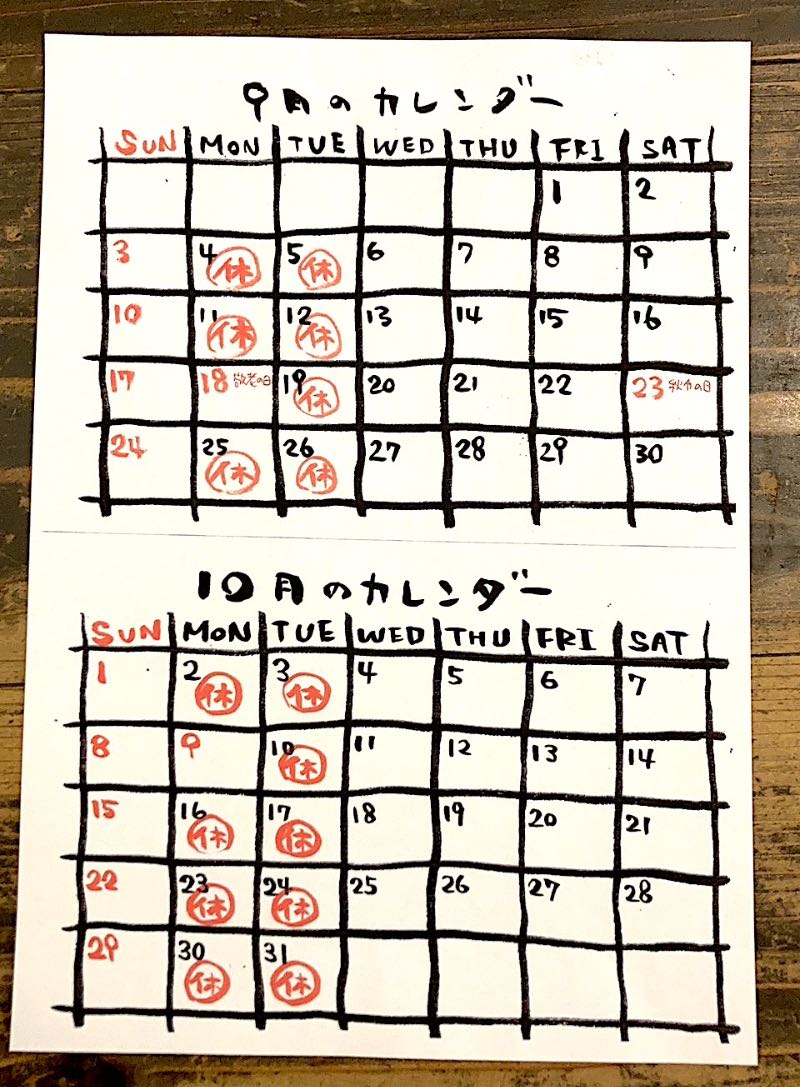 9月のカレンダー
SUN MON TUE WED THU FRI SAT
1 2
3 4休 5休 6 7 8 9
10 11休 12休 13 14 15 16
17 18敬老の日 19休 20 21 22 23秋分の日
24 25休 26休 27 28 29 30
10月のカレンダー
SUN MON TUE WED THU FRI SAT
1 2休 3休 4 5 6 7
8 9 10休 11 12 13 14
15 16休 17休 18 19 20 21
22 23休 24休 25 26 27 28
29 30休 31休